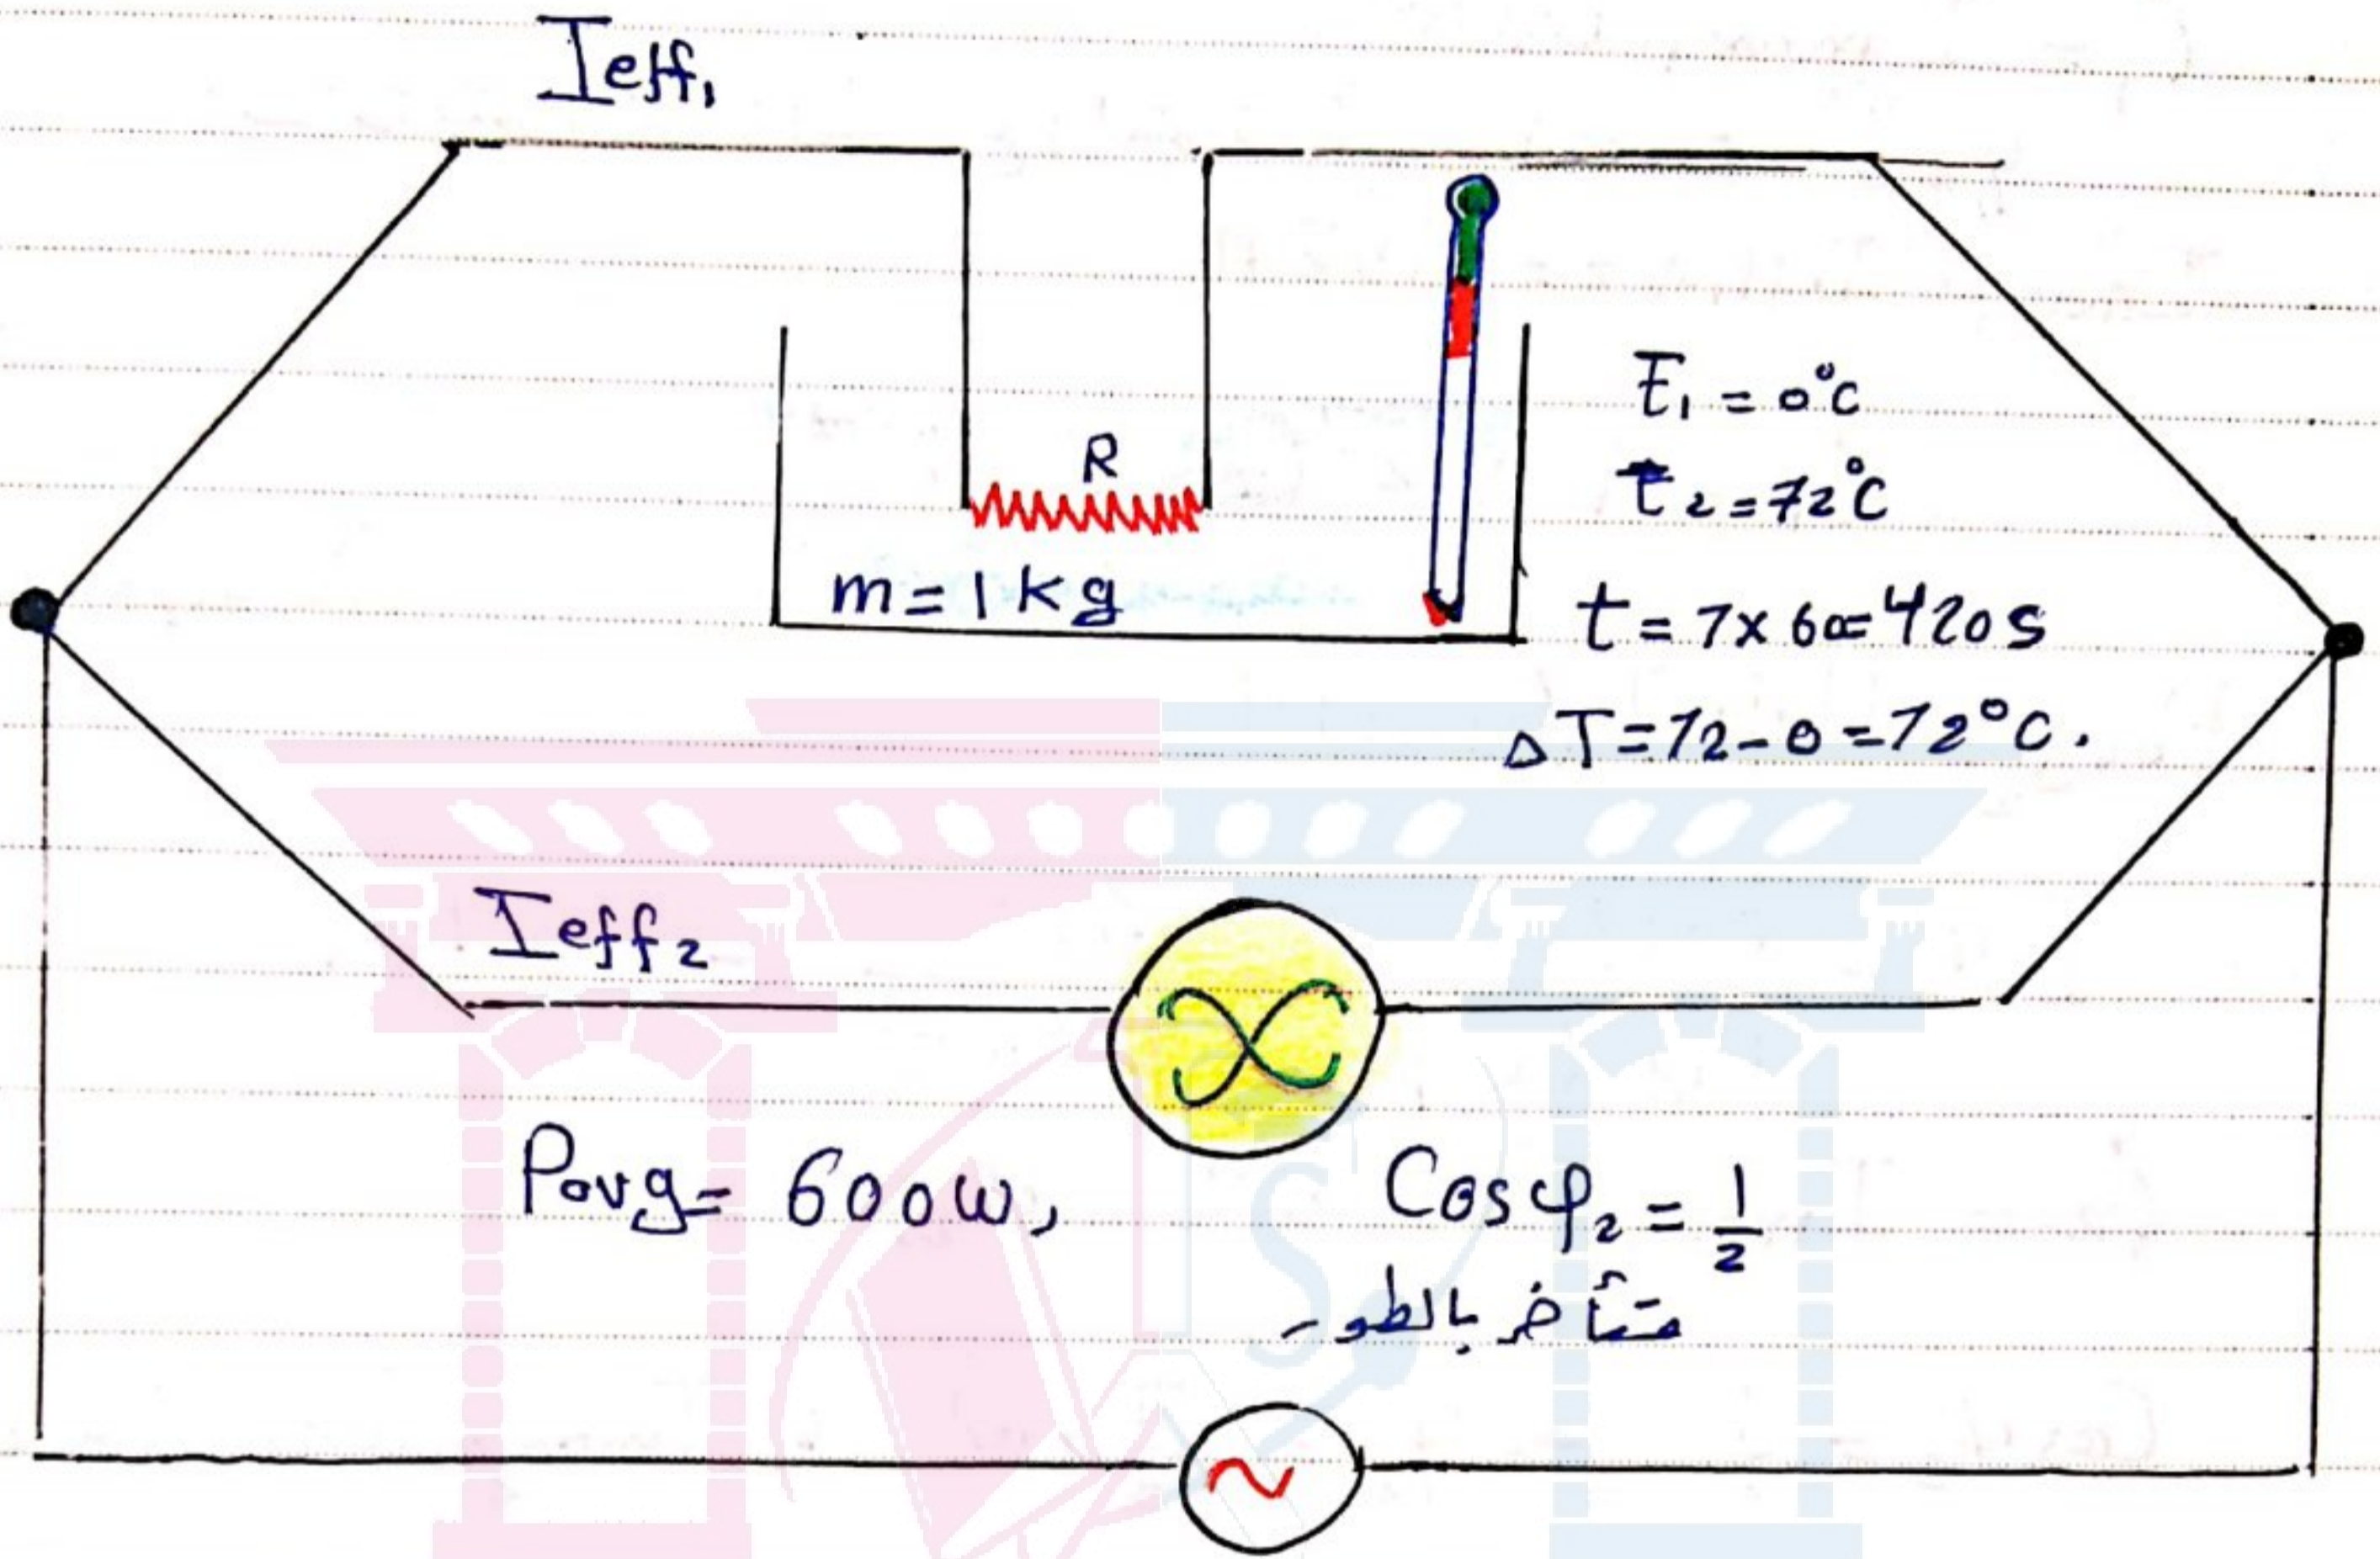 Ieff₁
t₁ = 0°C
R
t₂ = 72°C
m = 1 kg
t = 7 x 60 = 420 s
ΔT = 72 - 0 = 72°C.
Ieff₂
Pavg = 600 W, Cos φ₂ = 1/2
متأخر بالطور
S